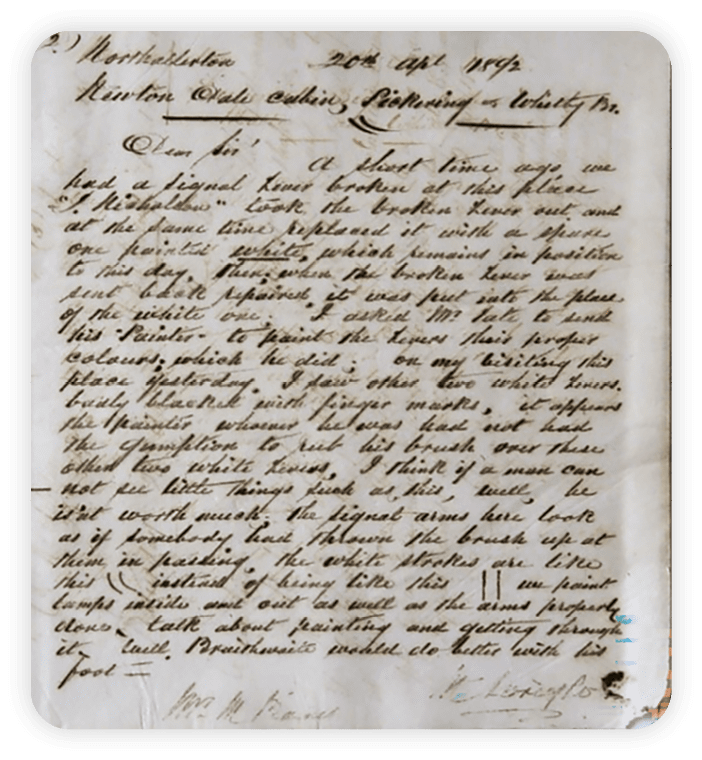 2.) Northallerton 20th Apl 1892
Newton Dale cabin, Pickering & Whitby Br.
Dear Sir!
A short time ago we
had a signal Lever broken at this place
"J. Nicholson" took the broken Lever out, and
at the same time replaced it with a spare
one painted white, which remains in position
to this day, then, when the broken Lever was
sent back repaired, it was put into the place
of the white one. I asked Mr. Tate to send
his "Painter" to paint the Levers their proper
colours, which he did; on my visiting this
place yesterday, I saw other two white Levers,
badly blacked with finger marks, it appears
the painter whoever he was had not had
the gumption to rub his brush over these
other two white Levers, I think if a man can
not see little things such as this, well, he
is'nt worth much. the signal arms here look
as if somebody had thrown the brush up at
them in passing, the white strokes are like
this \\ instead of being like this || we paint
lamps inside and out as well as the arms properly
done, talk about painting and getting through
it Will Braithwaite would do better with his
foot =
Mr. M